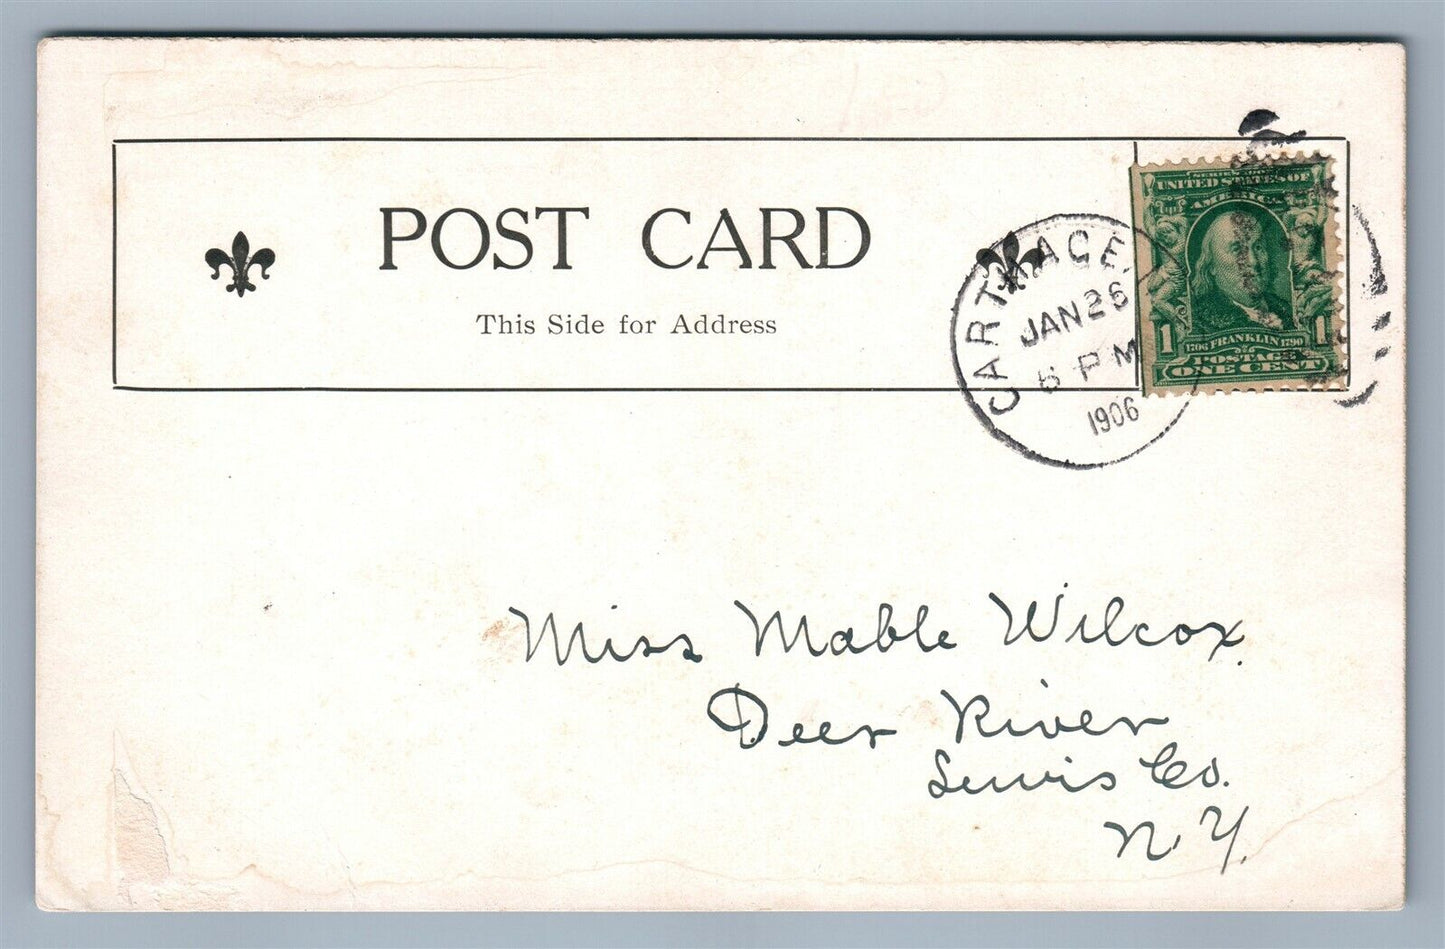 POST CARD
This Side for Address
CARTHAGE
JAN 26
PM
1906
UNITED STATES OF
AMERICA
1 1
1706 FRANKLIN 1790
POSTAGE
ONE CENT
Miss Mable Wilcox
Deer River
Lewis Co.
N.Y.